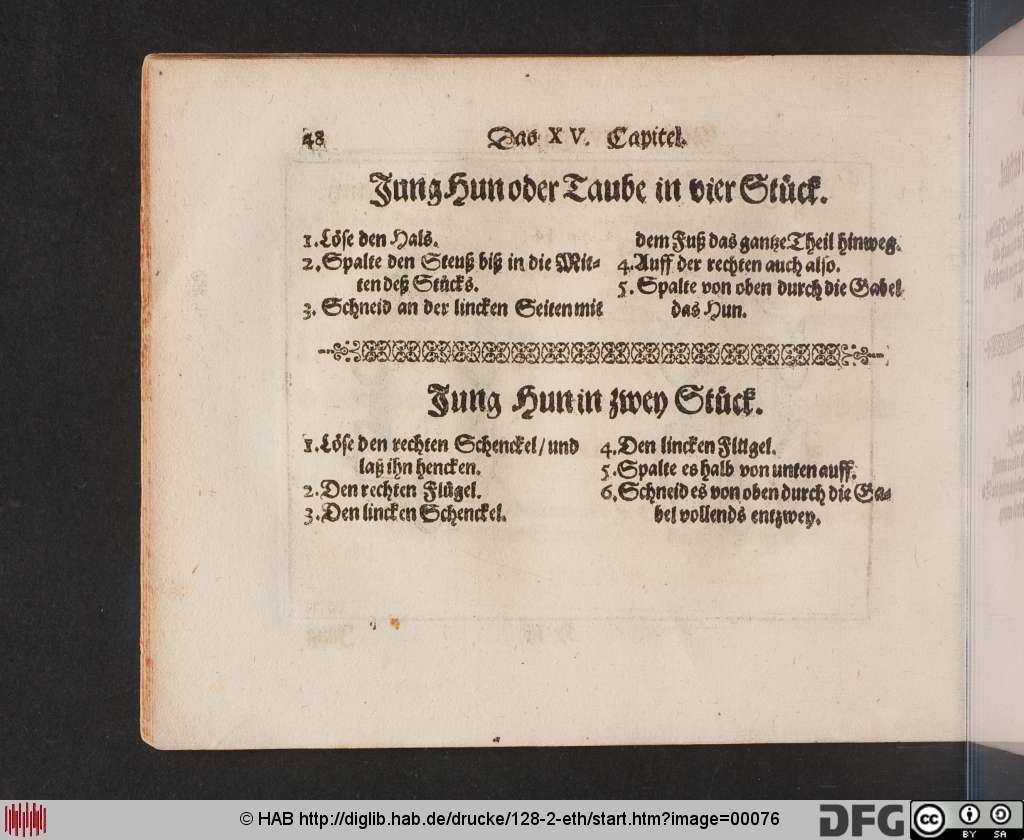 48 Das XV. Capitel.
Jung Hun oder Taube in vier Stück.
1. Löse den Hals.
2. Spalte den Steuß biß in die Mit-
ten deß Stücks.
3. Schneid an der lincken Seiten mit
dem Fuß das gantze Theil hinweg.
4. Auff der rechten auch also.
5. Spalte von oben durch die Gabel
das Hun.
Jung Hun in zwey Stück.
1. Löse den rechten Schenckel/ und
laß ihn hencken.
2. Den rechten Flügel.
3. Den lincken Schenckel.
4. Den lincken Flügel.
5. Spalte es halb von unten auff.
6. Schneid es von oben durch die Ga-
bel vollends entzwey.
© HAB http://diglib.hab.de/drucke/128-2-eth/start.htm?image=00076
DFG
cc BY SA